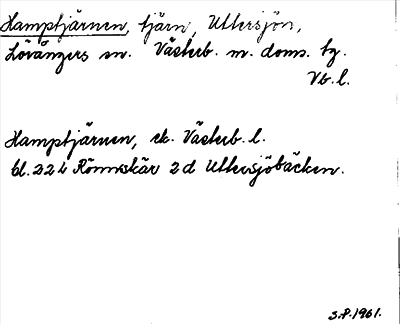 Hamptjärnen, tjärn, Uttersjön,
Lövångers sn. Västerb. m. doms. tg.
Vb. l.
Hamptjärnen, ek. Västerb. l.
bl. 22 L Rönnskär 2 d Uttersjöbäcken.
S.P. 1961.